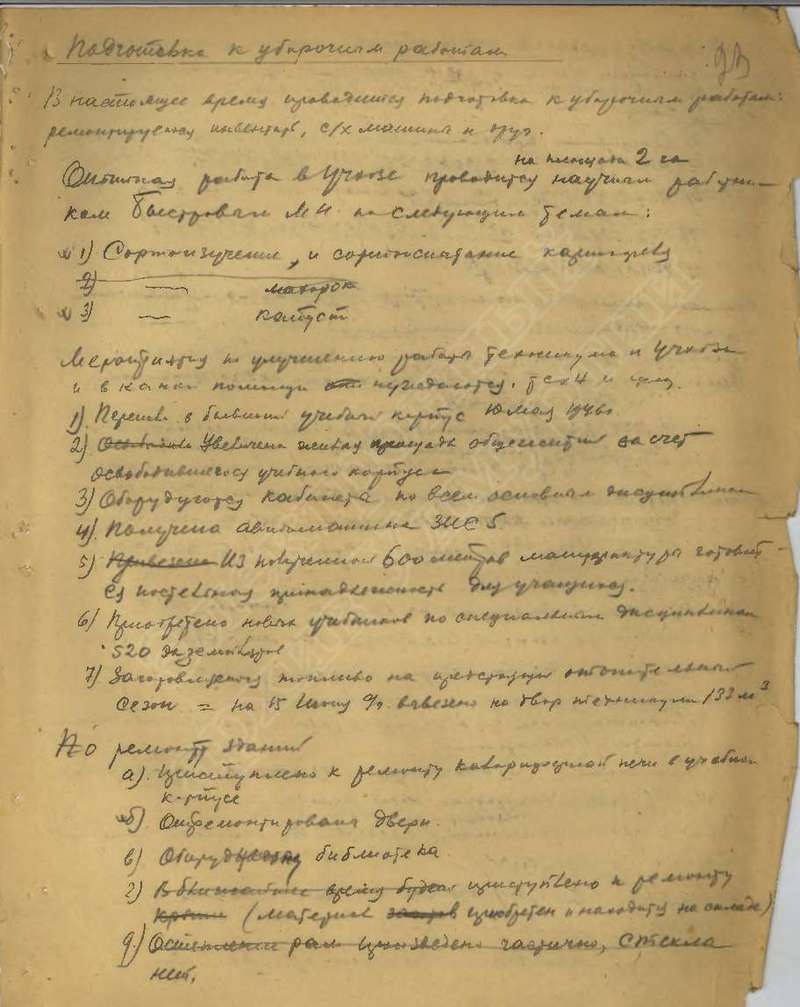 Подготовка к уборочным работам
В настоящее время проводится подготовка к уборочным работам:
ремонтируются инвентарь, с/х машины и друг.
на площади 2 га
Опытная работа в Учхозе проводится научным работни-
ком Быстровым М И по следующим темам:
1) Сортоизучение, и сортоиспытание картофеля
2) — махорок
3) — капуст
Мероприятия по улучшению работы техникума и Учхоза
и в какой помощи нуждаются, тех-м и
1) Перешли в бывший учебный корпус 10 мая 1946г
2) Увеличена жилая площадь общежития за счет
освободившегося учебного корпуса
3) Оборудуются кабинета по всем основным дисциплинам
4) Получена автомашина ЗИС 5
5) Привезено Из полученной 600 метров мануфактуры готовит-
ся постельная принадлежность для учащихся.
6) Приобретено новых учебников по специальным дисциплинам
520 экземпляров
7) Заготовляется топливо на предстоящий отопительный
сезон = на 15 июня вывезено на двор техникума 133 м³
По ремонту зданий
а) Приступлено к ремонту калоризационной печи в учебном
корпусе
б) Отремонтирована дверь.
в) библиотека
г) В ближайшее время будет приступлено к ремонту
крыши (материал приобретен и находится на складе)
д) Остекление рам произведено частично, стекла
нет.